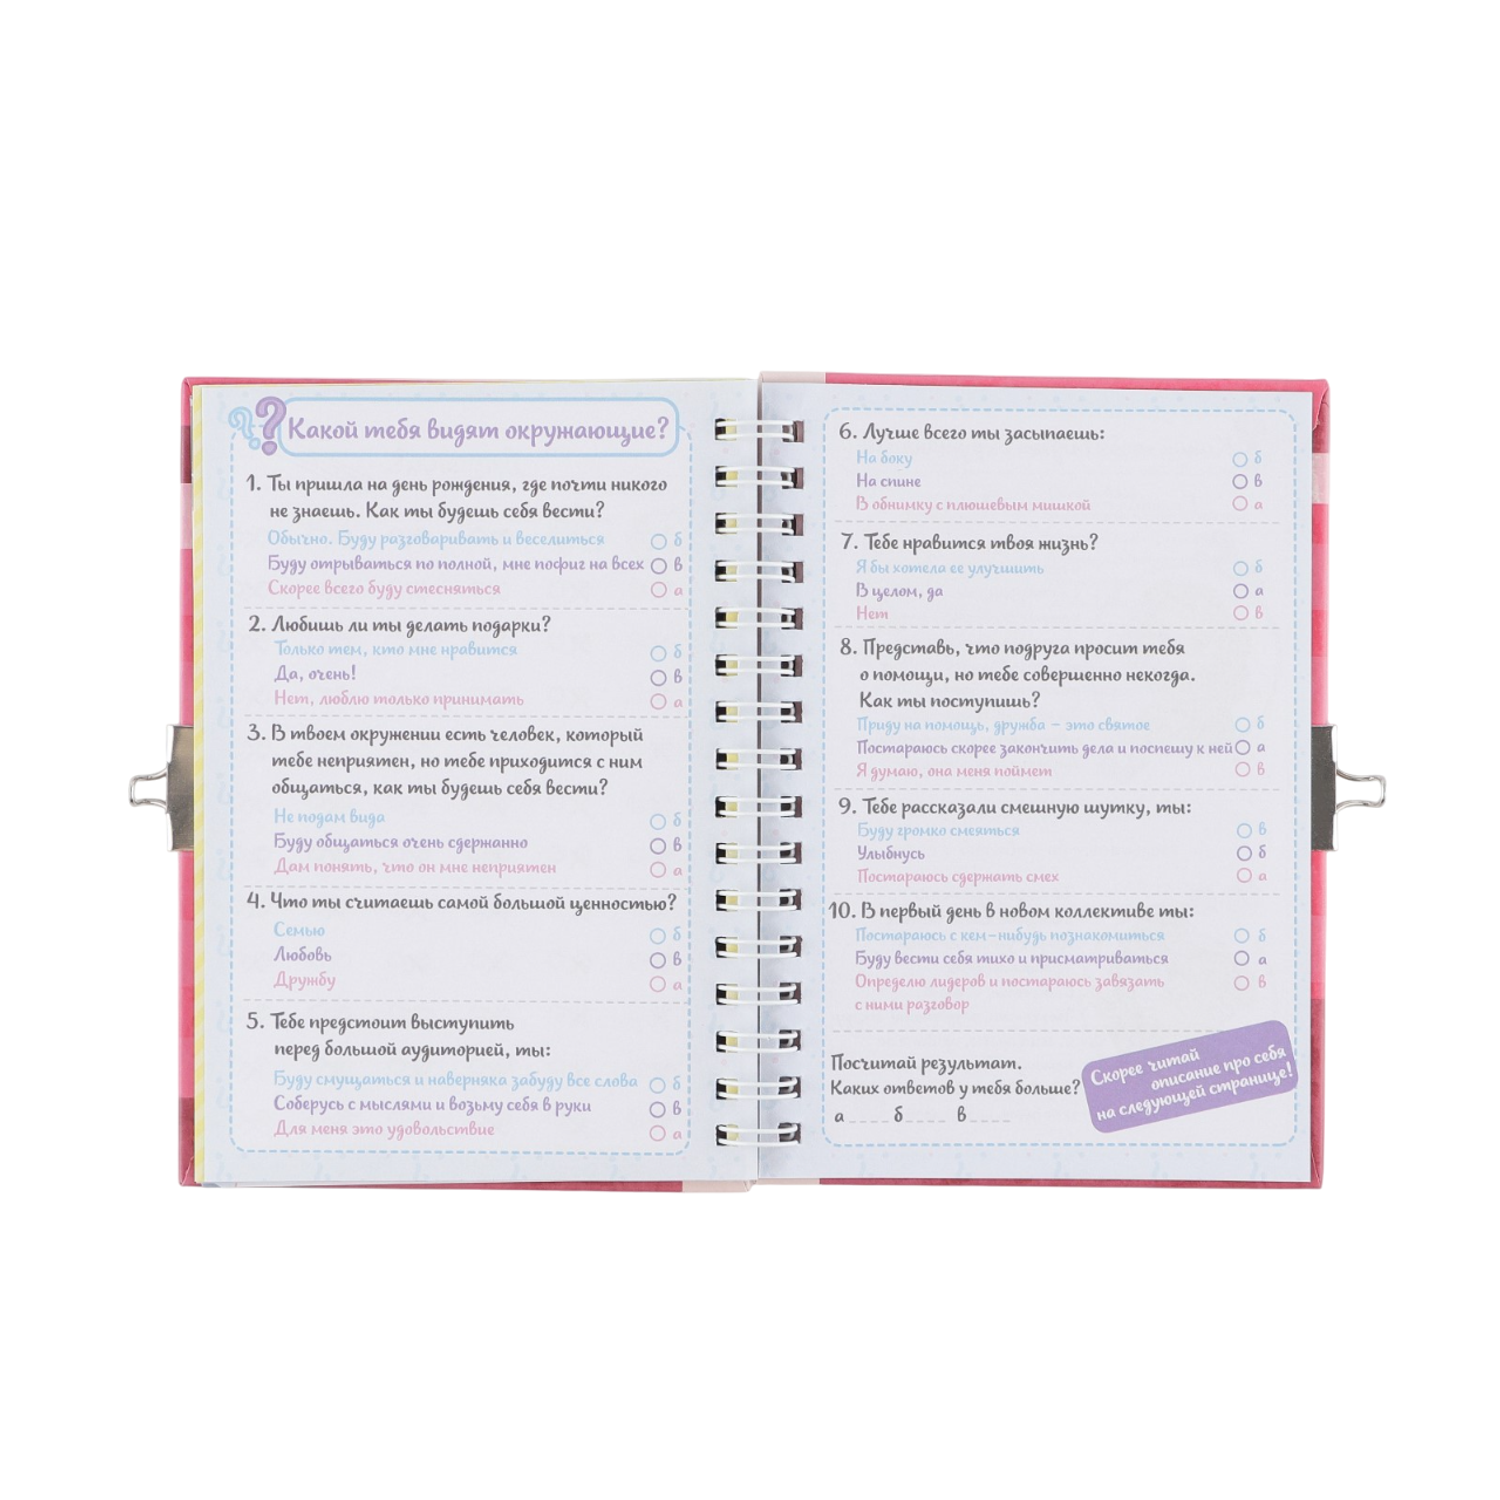 Какой тебя видят окружающие?
1. Ты пришла на день рождения, где почти никого
не знаешь. Как ты будешь себя вести?
Обычно. Буду разговаривать и веселиться б
Буду отрываться по полной, мне пофиг на всех в
Скорее всего буду стесняться а
2. Любишь ли ты делать подарки?
Только тем, кто мне нравится б
Да, очень! в
Нет, люблю только принимать а
3. В твоем окружении есть человек, который
тебе неприятен, но тебе приходится с ним
общаться, как ты будешь себя вести?
Не подам вида б
Буду общаться очень сдержанно в
Дам понять, что он мне неприятен а
4. Что ты считаешь самой большой ценностью?
Семью б
Любовь в
Дружбу а
5. Тебе предстоит выступить
перед большой аудиторией, ты:
Буду смущаться и наверняка забуду все слова б
Соберусь с мыслями и возьму себя в руки в
Для меня это удовольствие а
6. Лучше всего ты засыпаешь:
На боку б
На спине в
В обнимку с плюшевым мишкой а
7. Тебе нравится твоя жизнь?
Я бы хотела ее улучшить б
В целом, да а
Нет в
8. Представь, что подруга просит тебя
о помощи, но тебе совершенно некогда.
Как ты поступишь?
Приду на помощь, дружба – это святое б
Постараюсь скорее закончить дела и поспешу к ней а
Я думаю, она меня поймет в
9. Тебе рассказали смешную шутку, ты:
Буду громко смеяться в
Улыбнусь б
Постараюсь сдержать смех а
10. В первый день в новом коллективе ты:
Постараюсь с кем-нибудь познакомиться б
Буду вести себя тихо и присматриваться а
Определю лидеров и постараюсь завязать в
с ними разговор
Посчитай результат.
Каких ответов у тебя больше?
а ____ б ____ в ____
Скорее читай
описание про себя
на следующей странице!